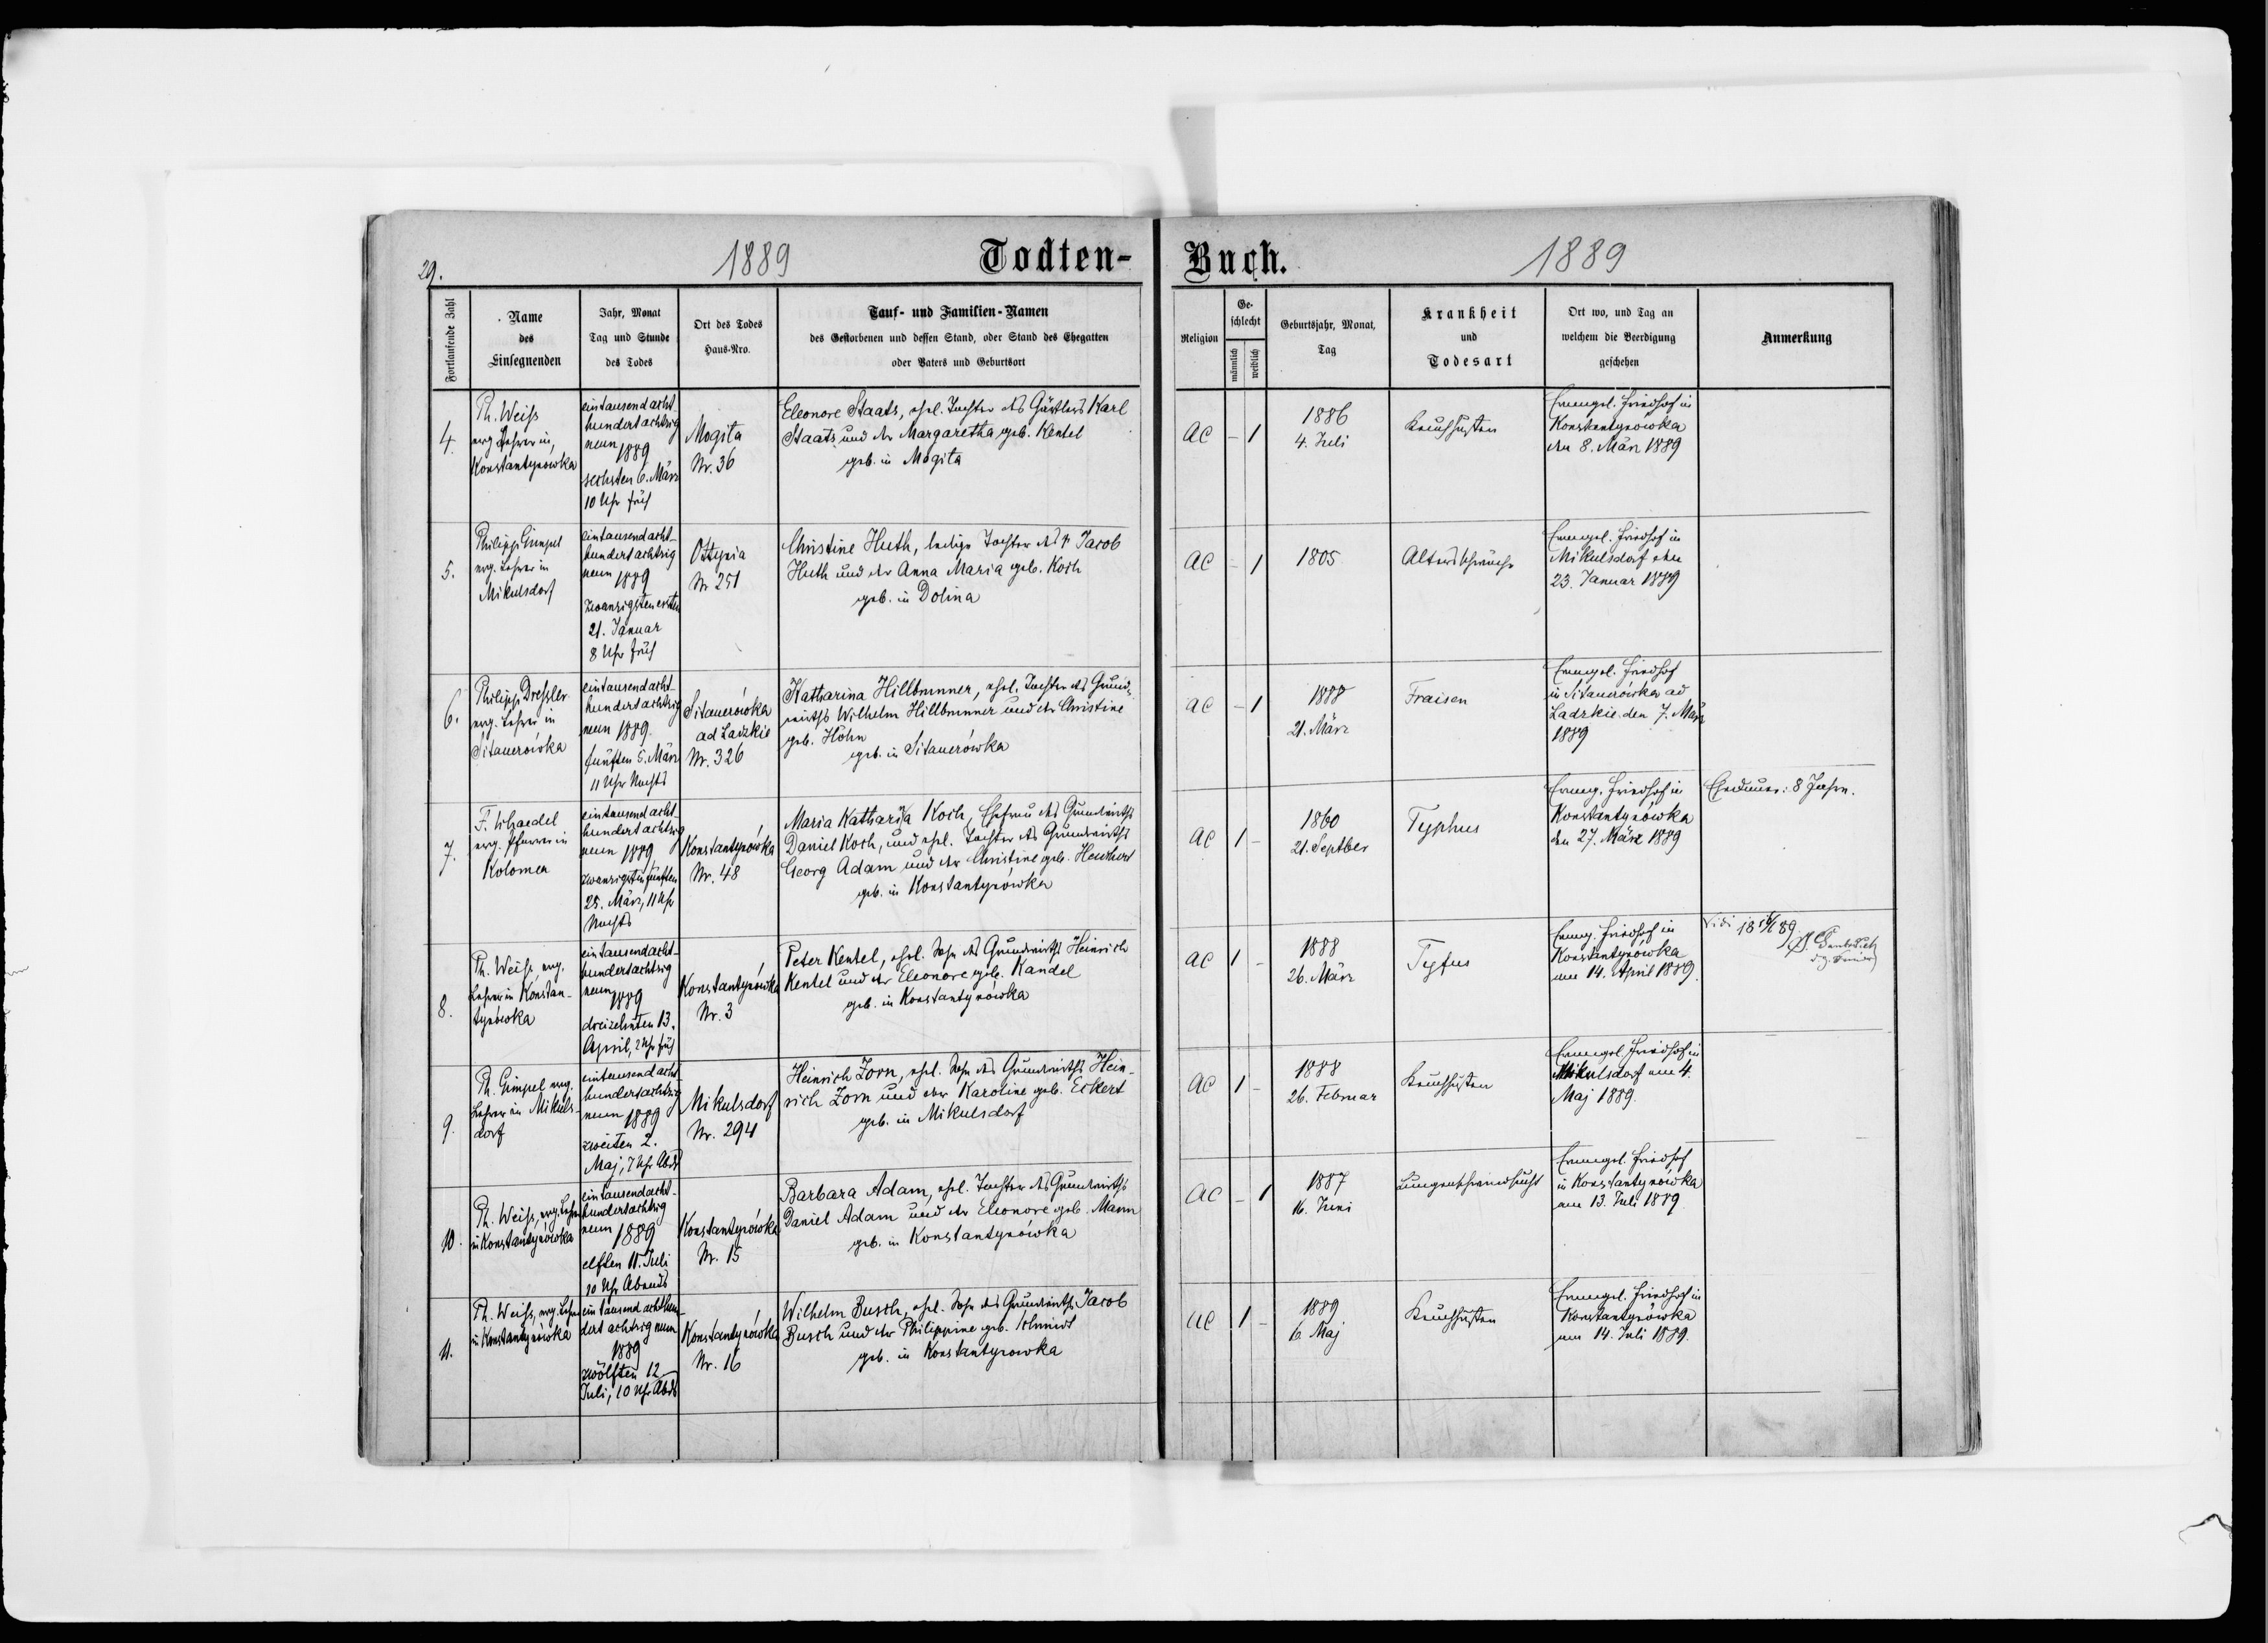 29.
1889
Todten-
Buch.
1889
Fortlaufende Zahl
Name
des
Einsegnenden
Jahr, Monat
Tag und Stunde
des Todes
Ort des Todes
Haus-Nro.
Tauf- und Familien-Namen
des Gestorbenen und dessen Stand, oder Stand des Ehegatten
oder Vaters und Geburtsort
Religion
Ge-
schlecht
männlich
weiblich
Geburtsjahr, Monat,
Tag
Krankheit
und
Todesart
Ort wo, und Tag an
welchem die Beerdigung
geschehen
Anmerkung
4.
Ph. Weiß
evg. Lehrer in
Konstantynówka
eintausend acht-
hundert achtzig
neun 1889
sechsten 6. März
10 Uhr früh
Mogita
Nr. 36
Eleonore Staats, ehel. Tochter des Gärtlers Karl
Staats und der Margaretha geb. Kentel
geb. in Mogita
AC – 1
1886
4. Juli
Keuchhusten
Evangel. Friedhof in
Konstantynówka
den 8. März 1889
5.
Philipp Gimpel
evg. Lehrer in
Mikulsdorf
eintausend acht-
hundert achtzig
neun 1889
zwanzigsten ersten
21. Januar
8 Uhr früh
Ottynia
Nr 251
Christine Huth, ledige Tochter des † Jacob
Huth und der Anna Maria geb. Koch
geb. in Dolina
AC – 1
1805
Altersschwäche
Evangel. Friedhof in
Mikulsdorf den
23. Januar 1889
6.
Philipp Dreßler
evg. Lehrer in
Sitauerówka
eintausend acht-
hundert achtzig
neun 1889.
fünften 5. März
11 Uhr Nachts
Sitauerówka
ad Ladzkie
Nr. 326
Katharina Hillbrunner, ehel. Tochter des Grund-
wirths Wilhelm Hillbrunner und der Christine
geb. Höhn
geb. in Sitauerówka
AC – 1
1888
21. März
Fraisen
Evangel. Friedhof
in Sitauerówka ad
Ladzkie den 7. März
1889
7.
F. Schaedel
evg. Pfarrer in
Kolomea
eintausend acht-
hundert achtzig
neun 1889
zwanzigsten fünften
25. März, 11 Uhr
Nachts
Konstantynówka
Nr. 48
Maria Katharina Koch, Ehefrau des Grundwirths
Daniel Koch, und ehel. Tochter des Grundwirths
Georg Adam und der Christine geb.
geb. in Konstantynówka
AC 1 –
1860
21. Septber
Typhus
Evang. Friedhof in
Konstantynówka
den 27. März 1889
Ehedauer: 8 Jahre.
8.
Ph. Weiß, evg.
Lehrer in Konstan-
tynówka
eintausend acht-
hundert achtzig
neun 1889
dreizehnten 13.
April, 2 Uhr früh
Konstantynówka
Nr. 3
Peter Kentel, ehel. Sohn des Grundwirths Heinrich
Kentel und der Eleonore geb. Kandel
geb. in Konstantynówka
AC 1 –
1888
26. März
Tyfus
Evang. Friedhof in
Konstantynówka
am 14. April 1889.
Vidi
9.
Ph. Gimpel evg.
Lehrer in Mikuls-
dorf
eintausend acht-
hundert achtzig
neun 1889
zweiten 2.
Maj, 7 Uhr Abds
Mikulsdorf
Nr. 294
Heinrich Zorn, ehel. Sohn des Grundwirths Hein-
rich Zorn und der Karoline geb. Eckert
geb. in Mikulsdorf
AC 1 –
1888
26. Februar
Keuchhusten
Evangel. Friedhof in
Mikulsdorf am 4.
Maj 1889.
10.
Ph. Weiß, evg. Lehrer
in Konstantynówka
eintausend acht-
hundert achtzig
neun 1889
elften 11. Juli
10 Uhr Abends
Konstantynówka
Nr. 15
Barbara Adam, ehel. Tochter des Grundwirths
Daniel Adam und der Eleonore geb. Mann
geb. in Konstantynówka
AC – 1
1887
16. Juni
Lungenschwindsucht
Evangel. Friedhof
in Konstantynówka
am 13. Juli 1889
11.
Ph. Weiß, evg. Lehrer
in Konstantynówka
eintausend achthun-
dert achtzig neun
1889
zwölften 12
Juli, 10 Uhr Abds
Konstantynówka
Nr. 16
Wilhelm Busch, ehel. Sohn des Grundwirths Jacob
Busch und der Philippine geb. Schmidt
geb. in Konstantynowka
AC 1 –
1889
6 Maj
Keuchhusten
Evangel. Friedhof in
Konstantynówka
am 14. Juli 1889.